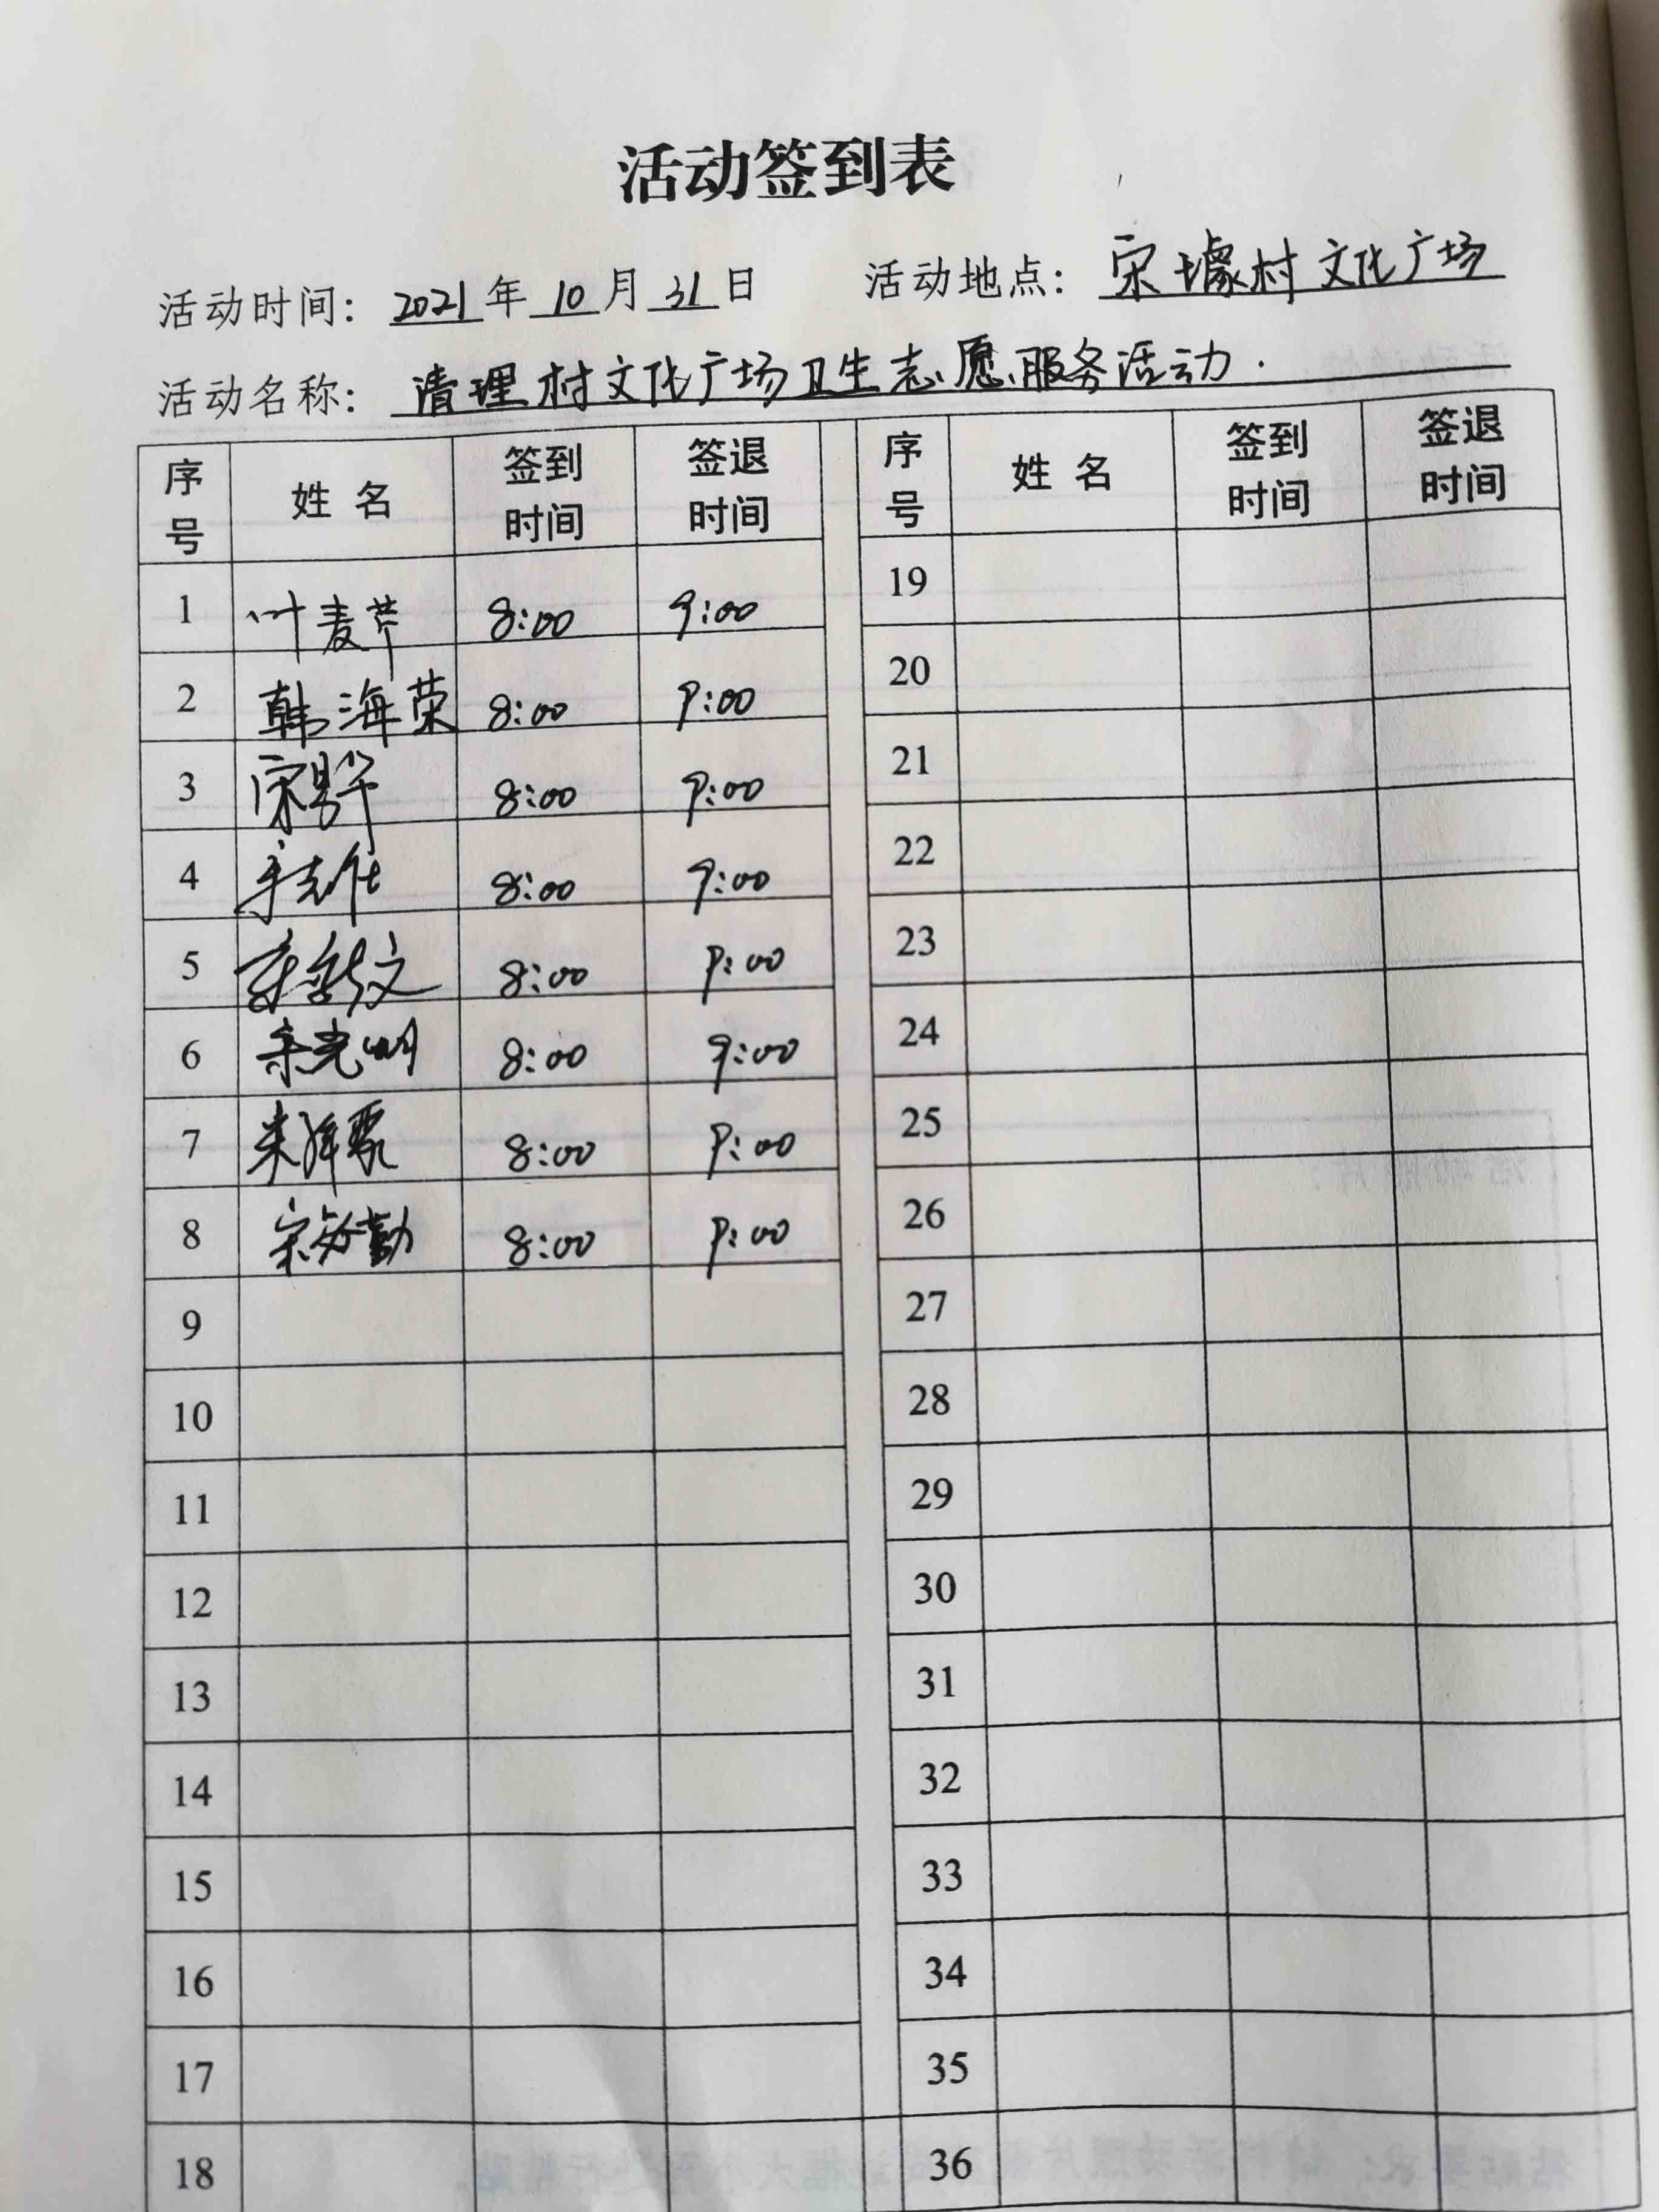 活动签到表
活动时间：2021年10月31日 活动地点：宋壕村文化广场
活动名称：清理村文化广场卫生志愿服务活动.
序号 姓名 签到时间 签退时间 序号 姓名 签到时间 签退时间
1 叶麦芹 8:00 9:00 19
2 韩海荣 8:00 9:00 20
3 8:00 9:00 21
4 8:00 9:00 22
5 8:00 9:00 23
6 8:00 9:00 24
7 8:00 9:00 25
8 8:00 9:00 26
9 27
10 28
11 29
12 30
13 31
14 32
15 33
16 34
17 35
18 36